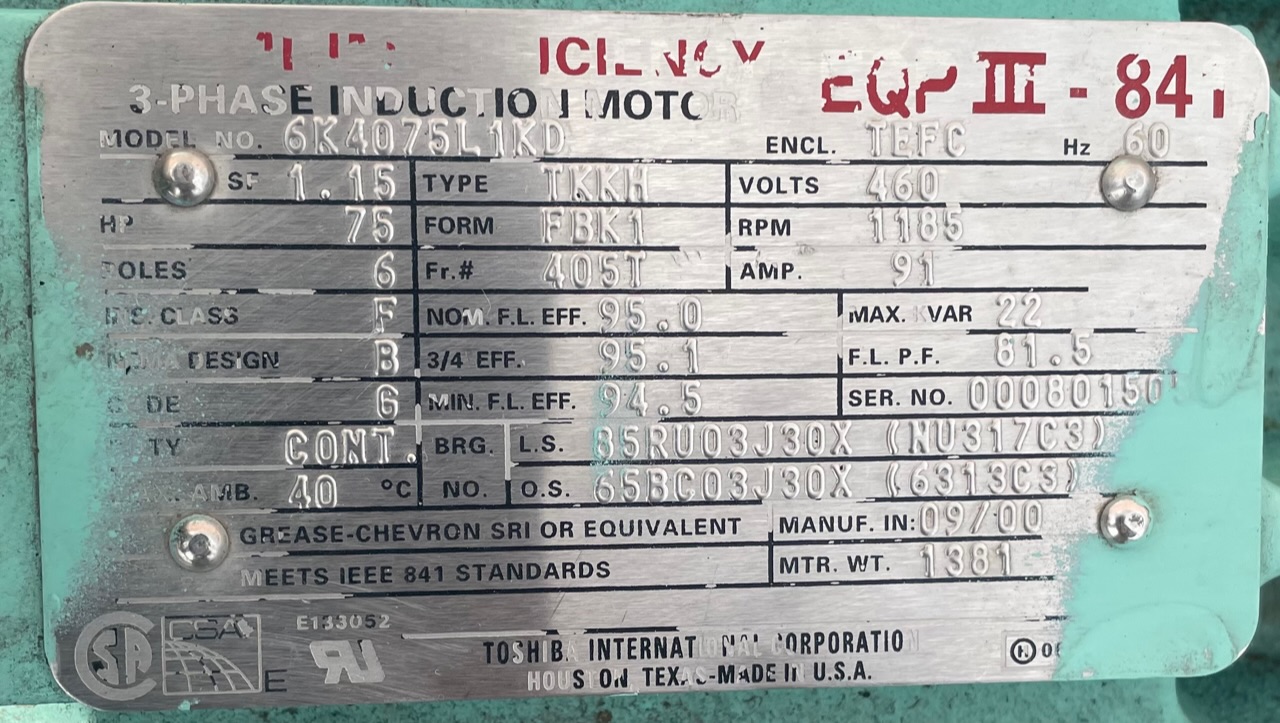 ICIENCY EQP III - 841
3-PHASE INDUCTION MOTOR
MODEL NO. 6K4075L1KD ENCL. TEFC Hz 60
SF 1.15 TYPE TKKH VOLTS 460
HP 75 FORM FBK1 RPM 1185
POLES 6 Fr.# 405T AMP. 91
INS. CLASS F NOM. F.L. EFF. 95.0 MAX. KVAR 22
NEMA DESIGN B 3/4 EFF. 95.1 F.L. P.F. 81.5
CODE G MIN. F.L. EFF. 94.5 SER. NO. 00080150
TY CONT. BRG. L.S. 85RU03J30X (NU317C3)
AMB. 40 °C NO. O.S. 65BC03J30X (6313C3)
GREASE-CHEVRON SRI OR EQUIVALENT MANUF. IN: 09/00
MEETS IEEE 841 STANDARDS MTR. WT. 1381
SA CSA E E133052 RU
TOSHIBA INTERNATIONAL CORPORATION
HOUSTON, TEXAS-MADE IN U.S.A.